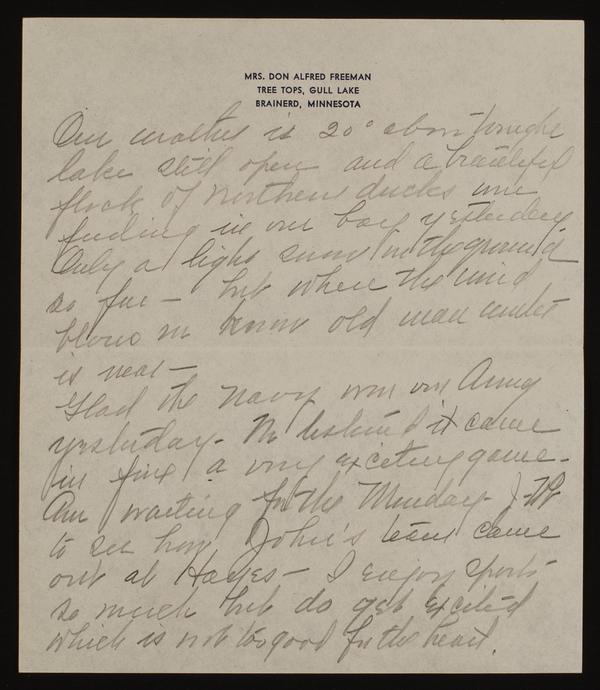 MRS. DON ALFRED FREEMAN
TREE TOPS, GULL LAKE
BRAINERD, MINNESOTA
Our weather is 20° above tonight
lake still open and a beautiful
flock of Northern ducks were
feeding in our bay yesterday.
Only a light snow on the ground
so far – but where the wind
blows we know old man winter
is near –
Glad the Navy won over Army
yesterday. We listened it came
in fine a very exciting game –
Am waiting for the Monday
to see how John's team came
out at Hayes – I enjoy sports
so much but do get excited
which is not too good for the heart.